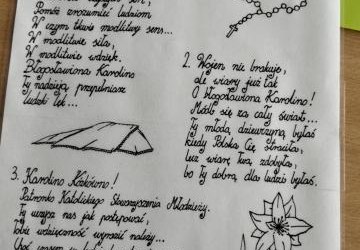 Pomóż zrozumieć ludziom
W czym tkwi modlitwy sens...
W modlitwie siła,
W modlitwie wdzięk.
Błogosławiona Karolino
Ty nadzieją przypełniasz
ludzki lęk...
2. Wojen nie brakuje,
ale wiary już tak
O błogosławiona Karolino!
Módl się za cały świat...
Ty młodą dziewczyną byłaś
kiedy Polska Cię straciła,
Lecz wiarę twą zdobyła,
bo Ty dobrą dla ludzi byłaś.
3. Karolino Kózkówno!
Patronko Katolickiego Stowarzyszenia Młodzieży.
Ty uczysz nas jak postępować,
Tobie wdzięczność wyrazić należy...